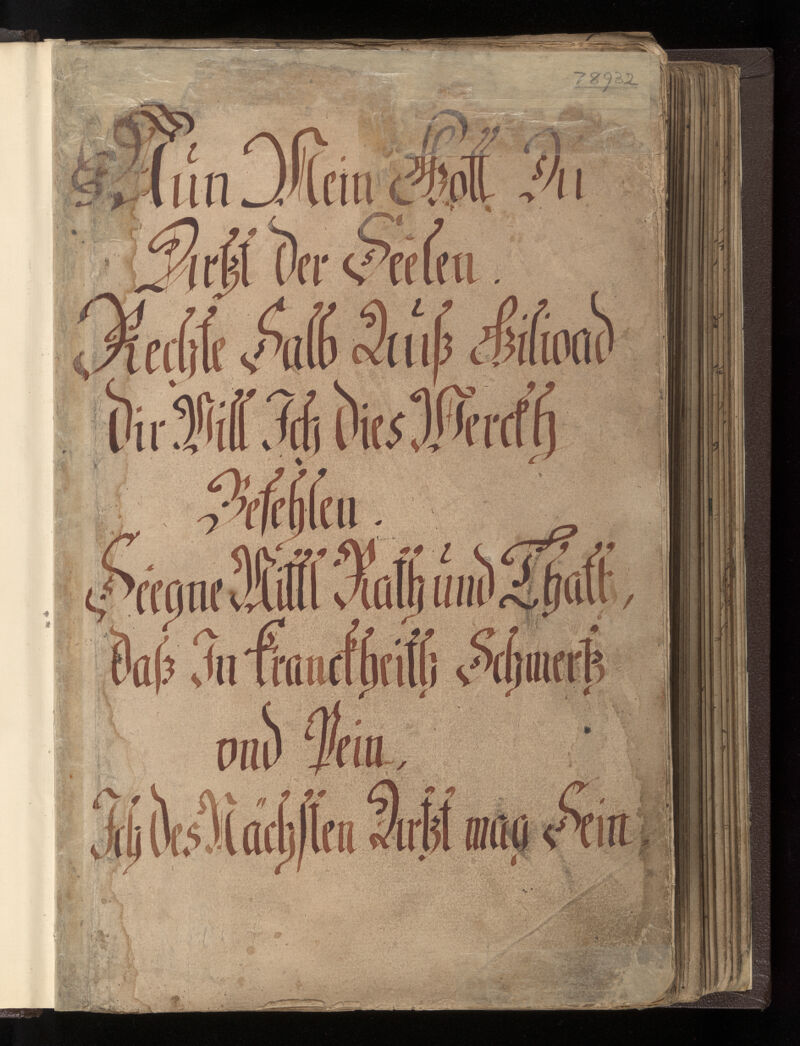 78932
Nun Mein Gott Du
Artzt der Seelen.
Rechte Salb Auß Gilioad
dir Will Ich dies Werckh
Befehlen.
Seegne Mittl Rath und Thatt,
daß In kranckheith Schmertz
vnd Pein,
Ich des Nächsten Artzt mag Sein